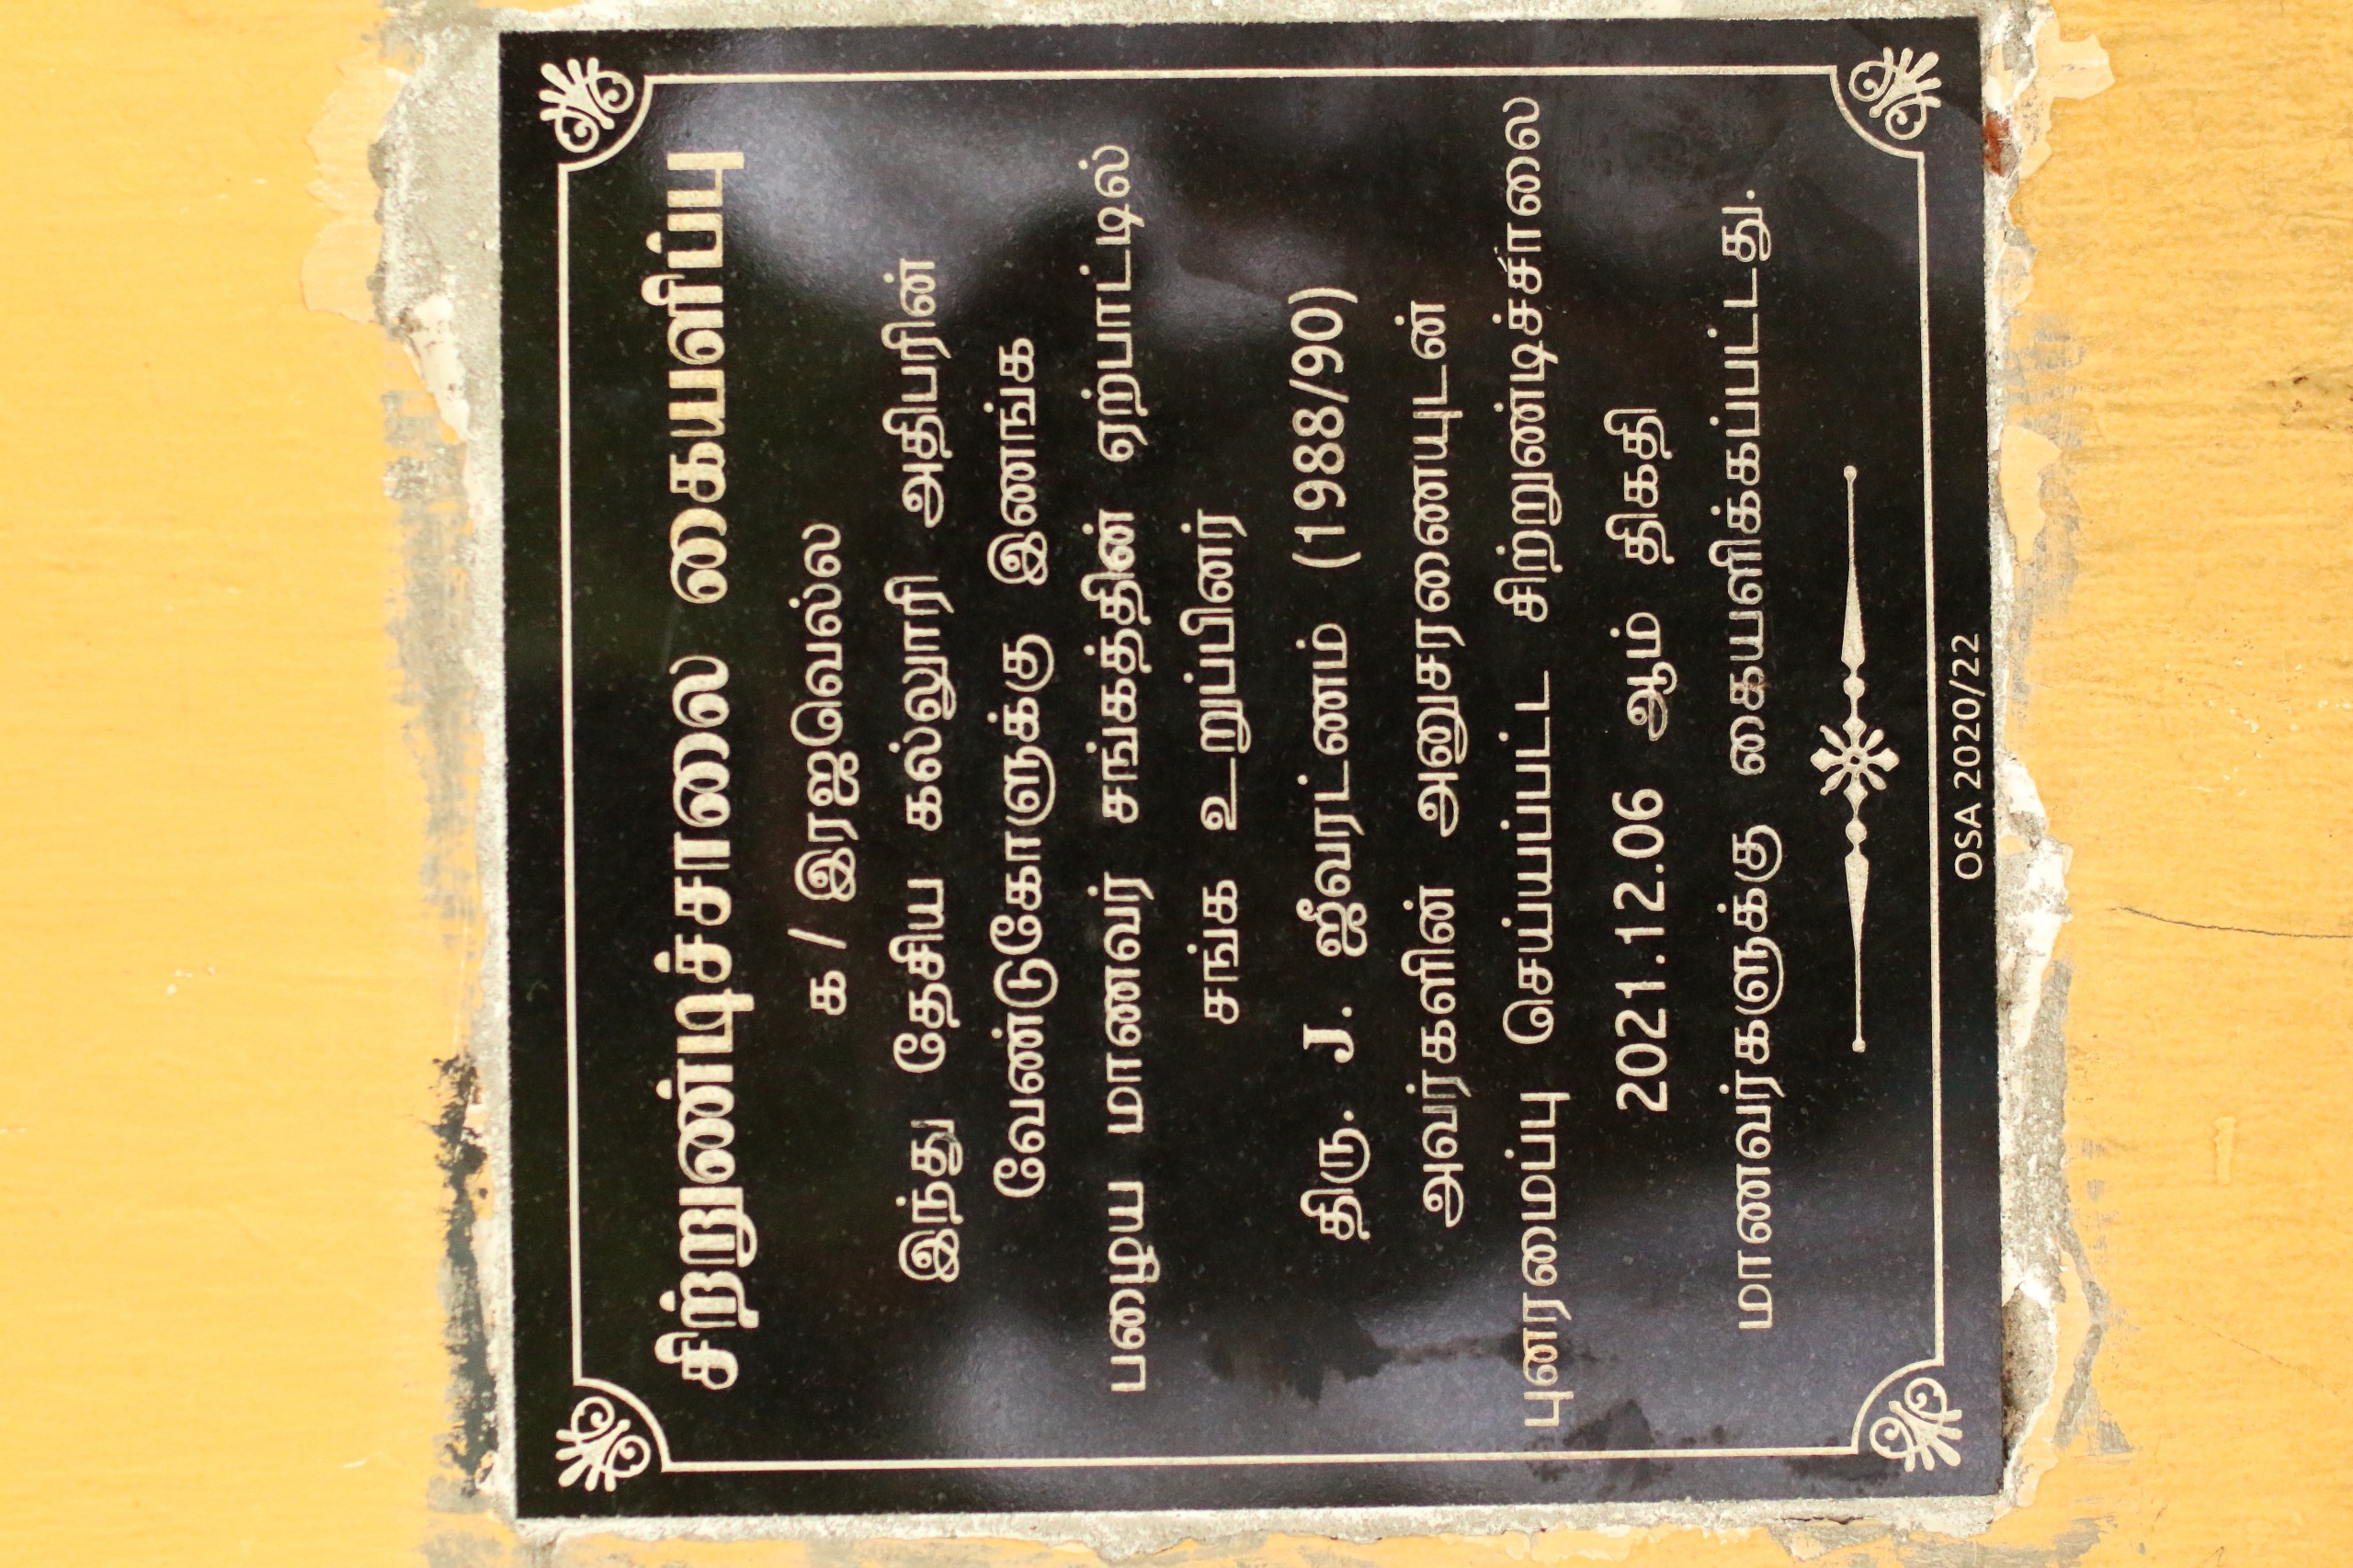 சிற்றுண்டிச்சாலை கையளிப்பு
க / இரஜவெல்ல
இந்து தேசிய கல்லூரி அதிபரின்
வேண்டுகோளுக்கு இணங்க
பழைய மாணவர் சங்கத்தின் ஏற்பாட்டில்
சங்க உறுப்பினர்
திரு. J. ஜீவரட்ணம் (1988/90)
அவர்களின் அனுசரணையுடன்
புனரமைப்பு செய்யப்பட்ட சிற்றுண்டிச்சாலை
2021.12.06 ஆம் திகதி
மாணவர்களுக்கு கையளிக்கப்பட்டது.
OSA 2020/22